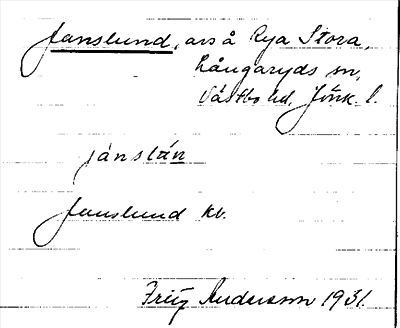 Janslund, avs å Rya Stora,
Långaryds sn,
Västbo hd, Jönk. l.
jánslán
Janslund kv.
Fritz Andersson 1931.